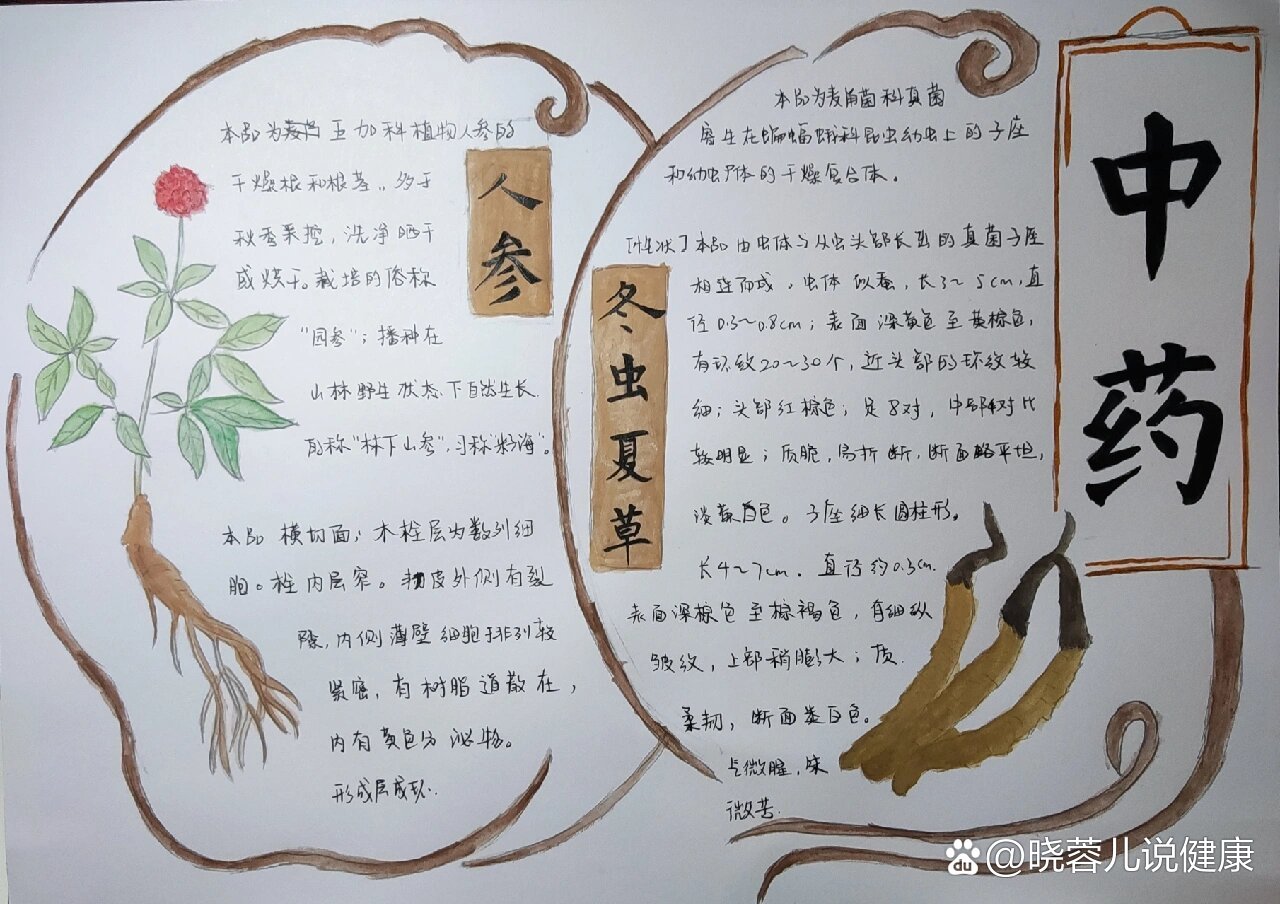 中药
人参
本品为五加科植物人参的
干燥根和根茎。多于
秋季采挖，洗净晒干
或烘干。栽培的俗称
“园参”；播种在
山林野生状态下自然生长
的称“林下山参”，习称“籽海”。
本品横切面：木栓层为数列细
胞。栓内层窄。韧皮外侧有裂
隙，内侧薄壁细胞排列较
紧密，有树脂道散在，
内有黄色分泌物。
形成层成环.
冬虫夏草
本品为麦角菌科真菌
寄生在蝙蝠蛾科昆虫幼虫上的子座
和幼虫尸体的干燥复合体。
[性状]本品由虫体与从虫头部长出的真菌子座
相连而成。虫体似蚕，长3~5cm,直
径0.3~0.8cm；表面深黄色至黄棕色，
有环纹20~30个，近头部的环纹较
细；头部红棕色；足8对，中部4对比
较明显；质脆，易折断，断面略平坦，
淡黄白色。子座细长圆柱形。
长4~7cm.直径约0.3cm.
表面深棕色至棕褐色，有细纵
皱纹，上部稍膨大；质
柔韧，断面类白色。
气微腥，味
微苦.
du @晓蓉儿说健康